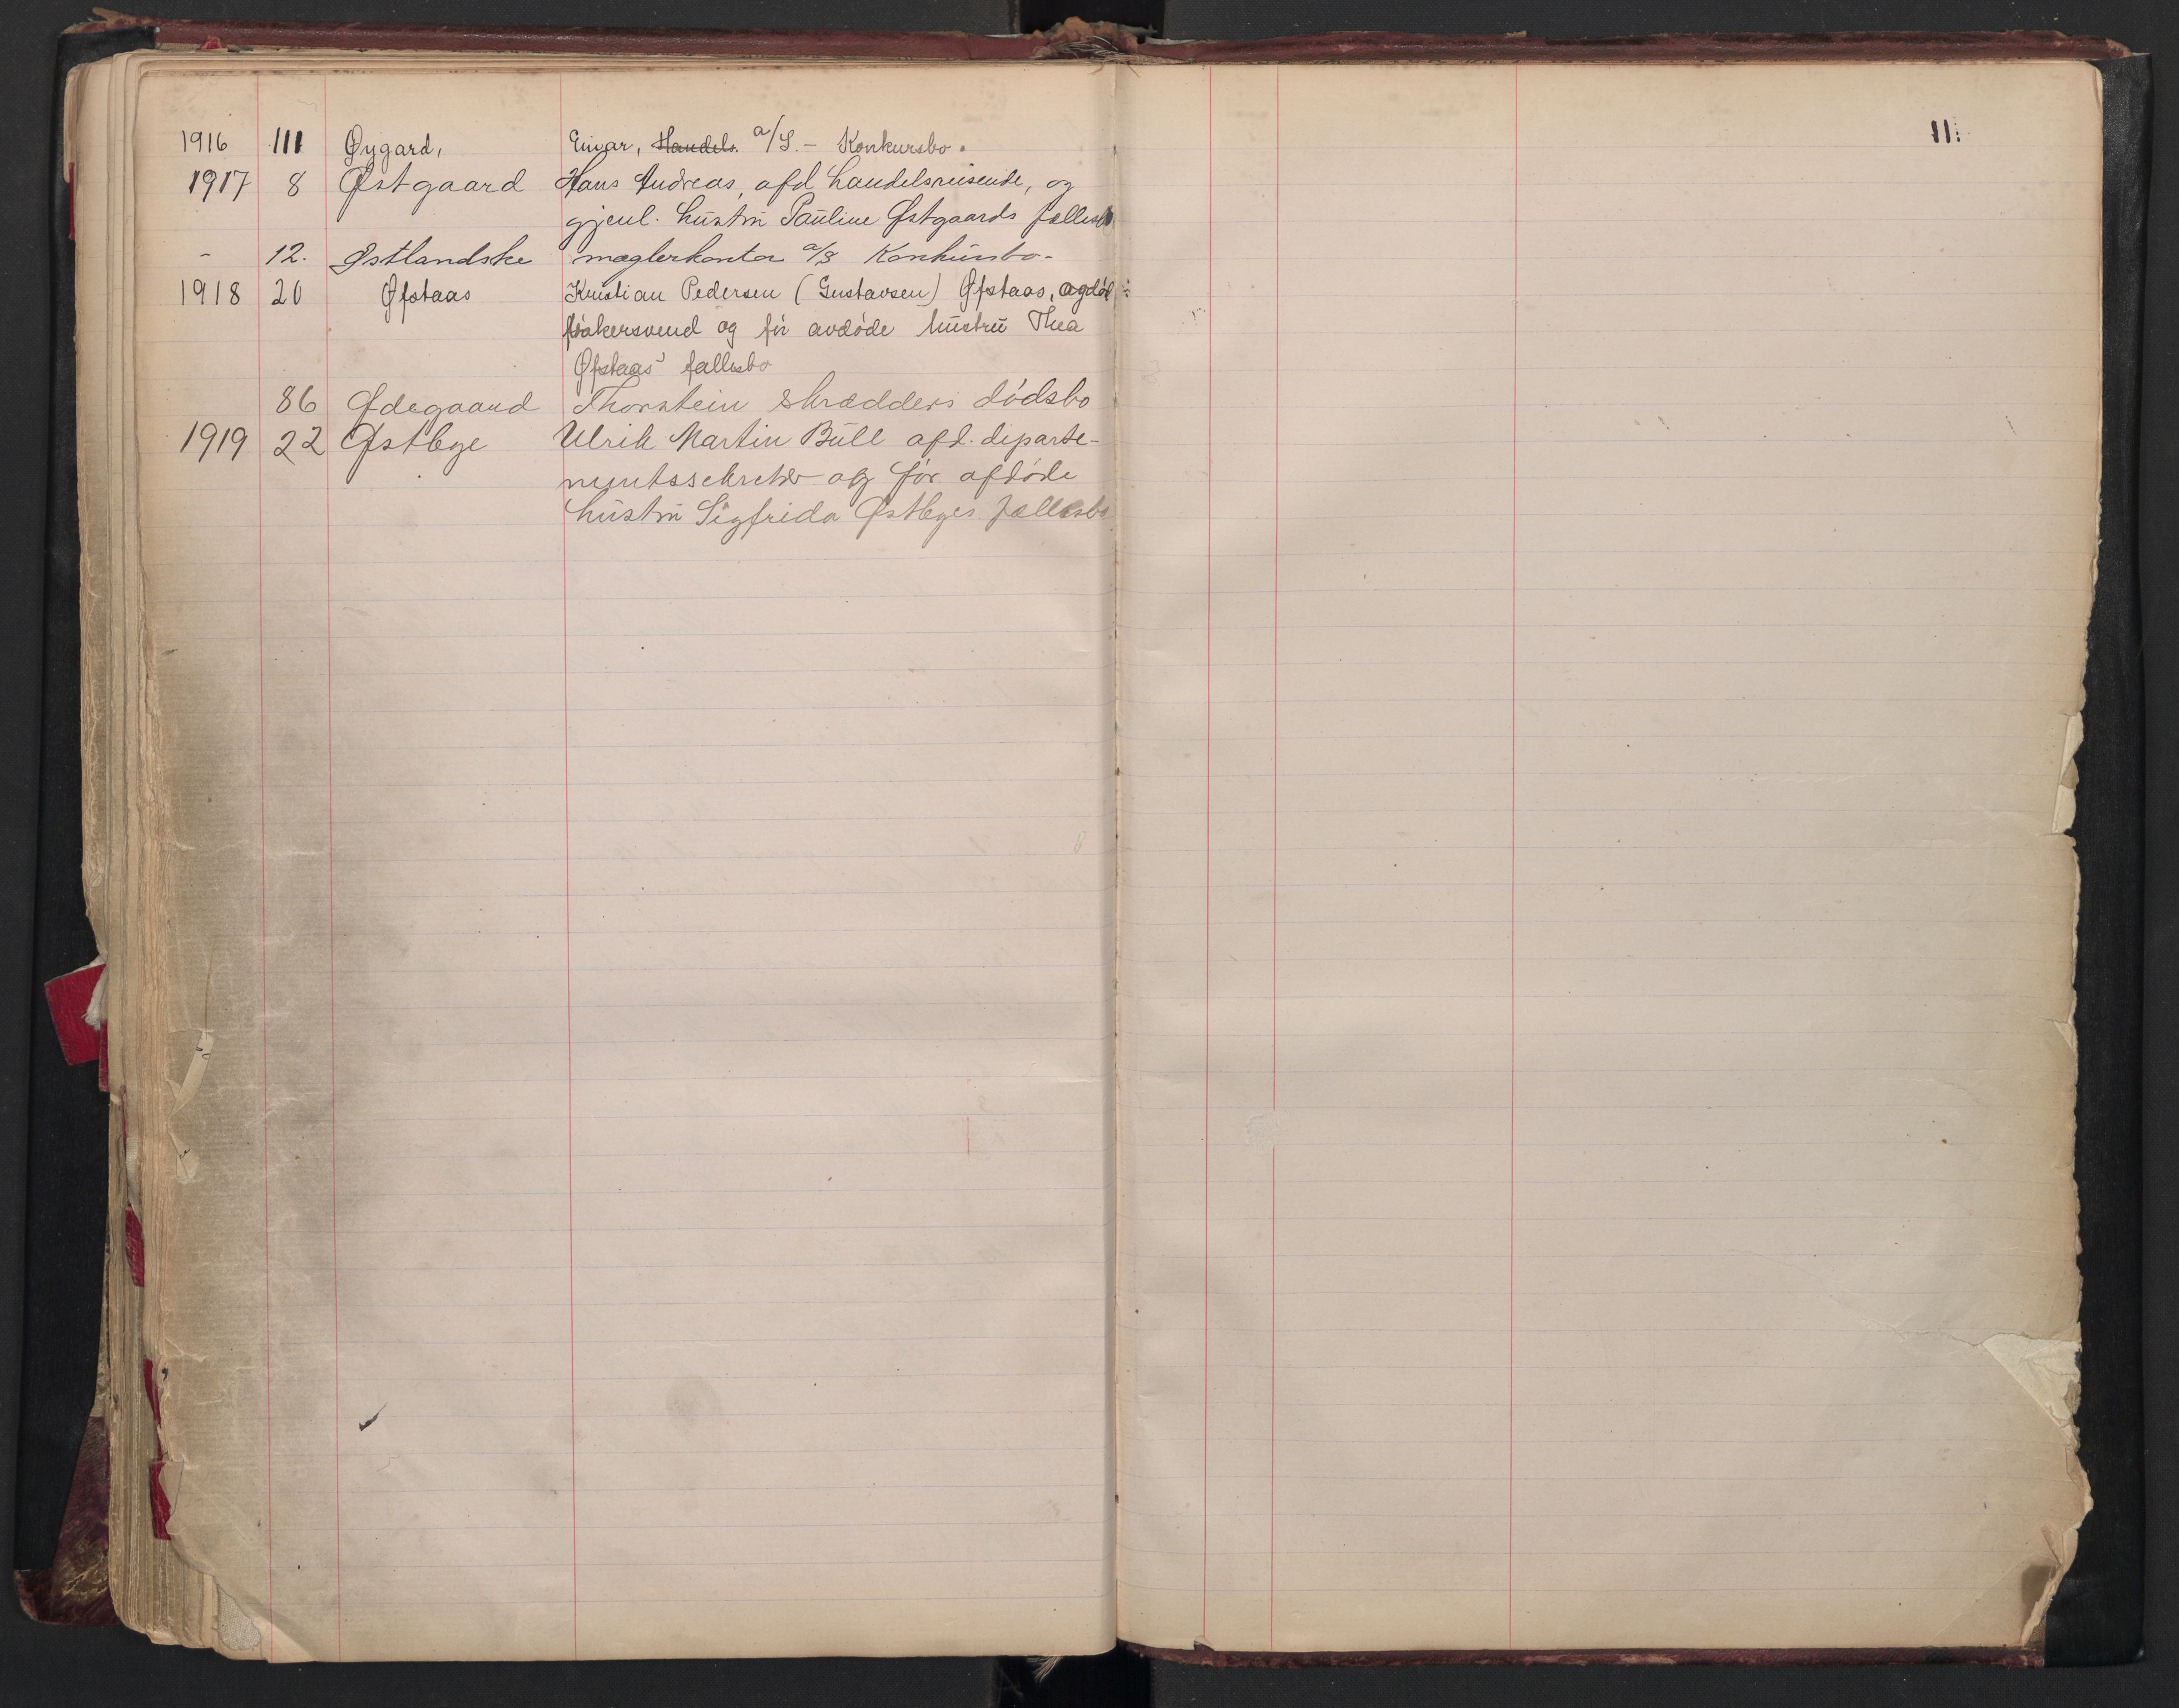 1916 111 Øygard, Einar, Handels. a/S. - Konkursbo.
1917 8 Østgaard Hans Andreas, afd handelsreisende, og
gjenl. hustru Pauline Østgaards fællesbo
- 12. Østlandske mæglerkontor a/S Konkursbo -
1918 20 Øfstaas Kristian Pedersen (Gustavsen) Øfstaas,
og før avdøde hustru Thea
Øfstaas' fællesbo
86 Ødegaard Thorstein skrædders dødsbo
1919 22 Østbye Ulrik Martin Bull afd. departe-
mentssekretær og før afdøde
hustru Sigfrida Østbyes fællesbo